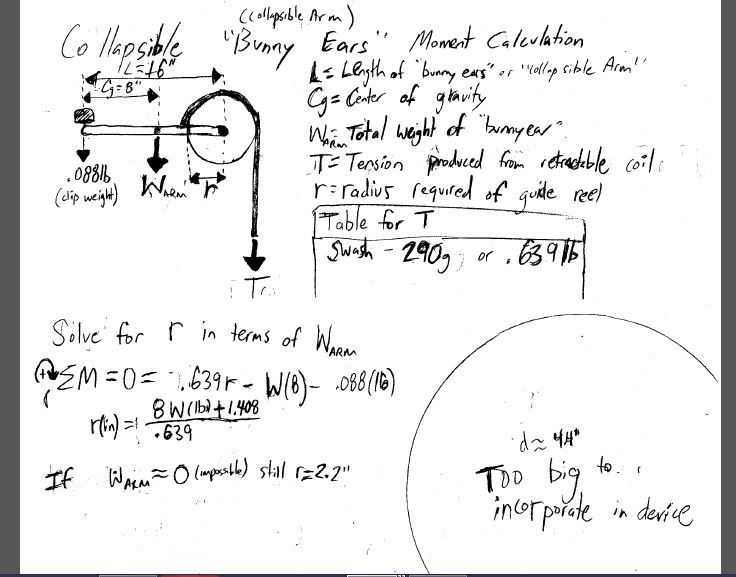 (Collapsible Arm)
Collapsible "Bunny Ears" Moment Calculation
L=16"
Cg=8"
.088lb
(clip weight)
WARM
r
T
L= Length of "bunny ears" or "collapsible Arm"
Cg= Center of gravity
WARM= Total weight of "bunny ear"
T= Tension produced from retractable coil
r= radius required of guide reel
Table for T
Swash - 290g, or .639lb
Solve for r in terms of WARM
ΣM=0= .639r - W(8) - .088(16)
r(in) = 8W(lb)+1.408
.639
If WARM≈0 (impossible) still r=2.2"
d≈4.4"
Too big to
incorporate in device